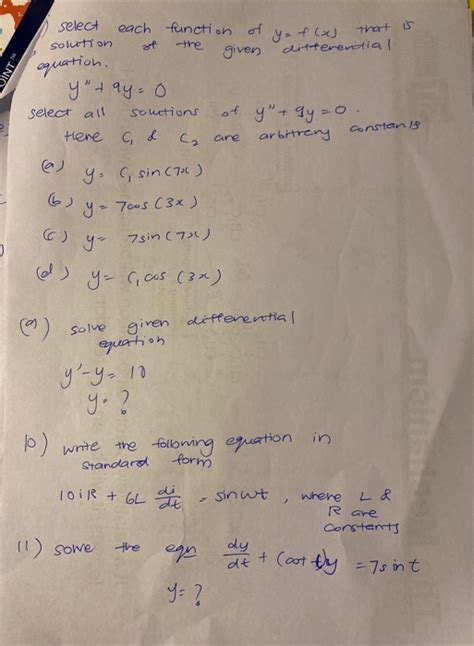 ) select each function of y = f(x) that is
solution of the given differendial
equation.
y" + 9y = 0
select all solutions of y" + 9y = 0 .
Here C₁ & C₂ are arbitrery constants
(a) y = C₁ sin(7x)
(b) y = 7cos (3x)
(c) y = 7sin(7x)
(d) y = C₁ cos (3x)
(9) solve given differenertial
equation
y' - y = 10
y = ?
10) write the following equation in
standard form
10iR + 6L di/dt = sinwt , where L &
R are
constents
(11) solve the eqn dy/dt + (cot t)y = 7sint
y = ?
OINT™